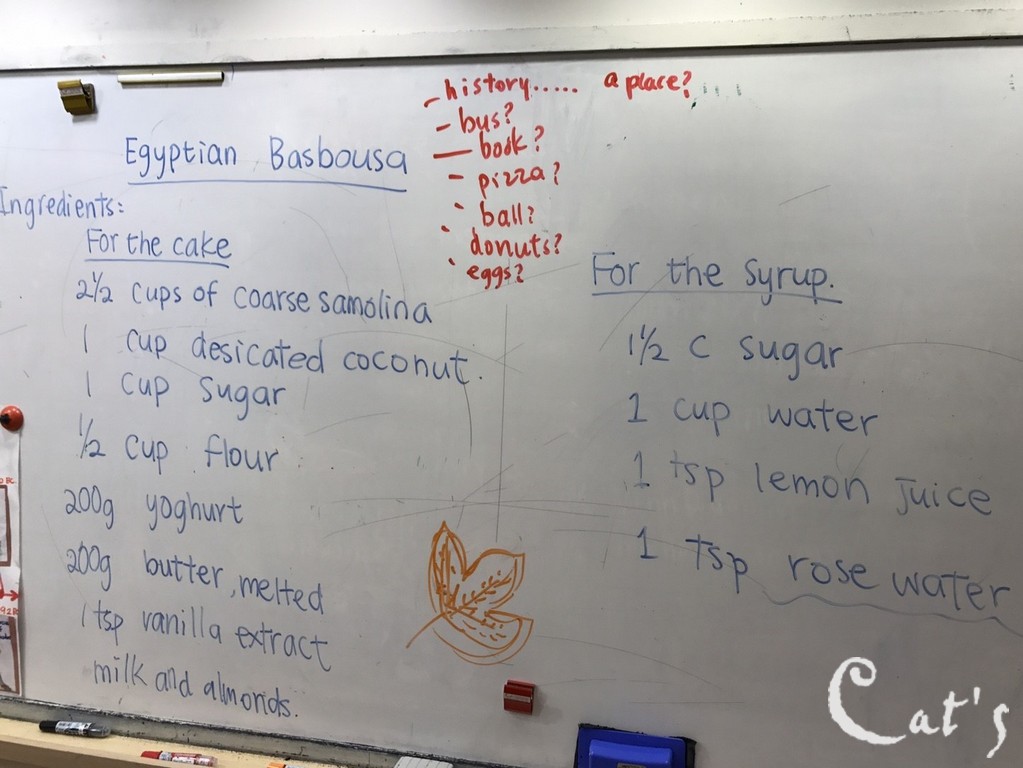 history..... a place?
bus?
book?
pizza?
ball?
donuts?
eggs?
Egyptian Basbousa
Ingredients:
For the cake
2½ cups of coarse samolina
1 cup desicated coconut.
1 cup sugar
½ cup flour
200g yoghurt
200g butter, melted
1 tsp vanilla extract
milk and almonds.
For the syrup.
1½ c sugar
1 cup water
1 tsp lemon juice
1 tsp rose water
Cat's